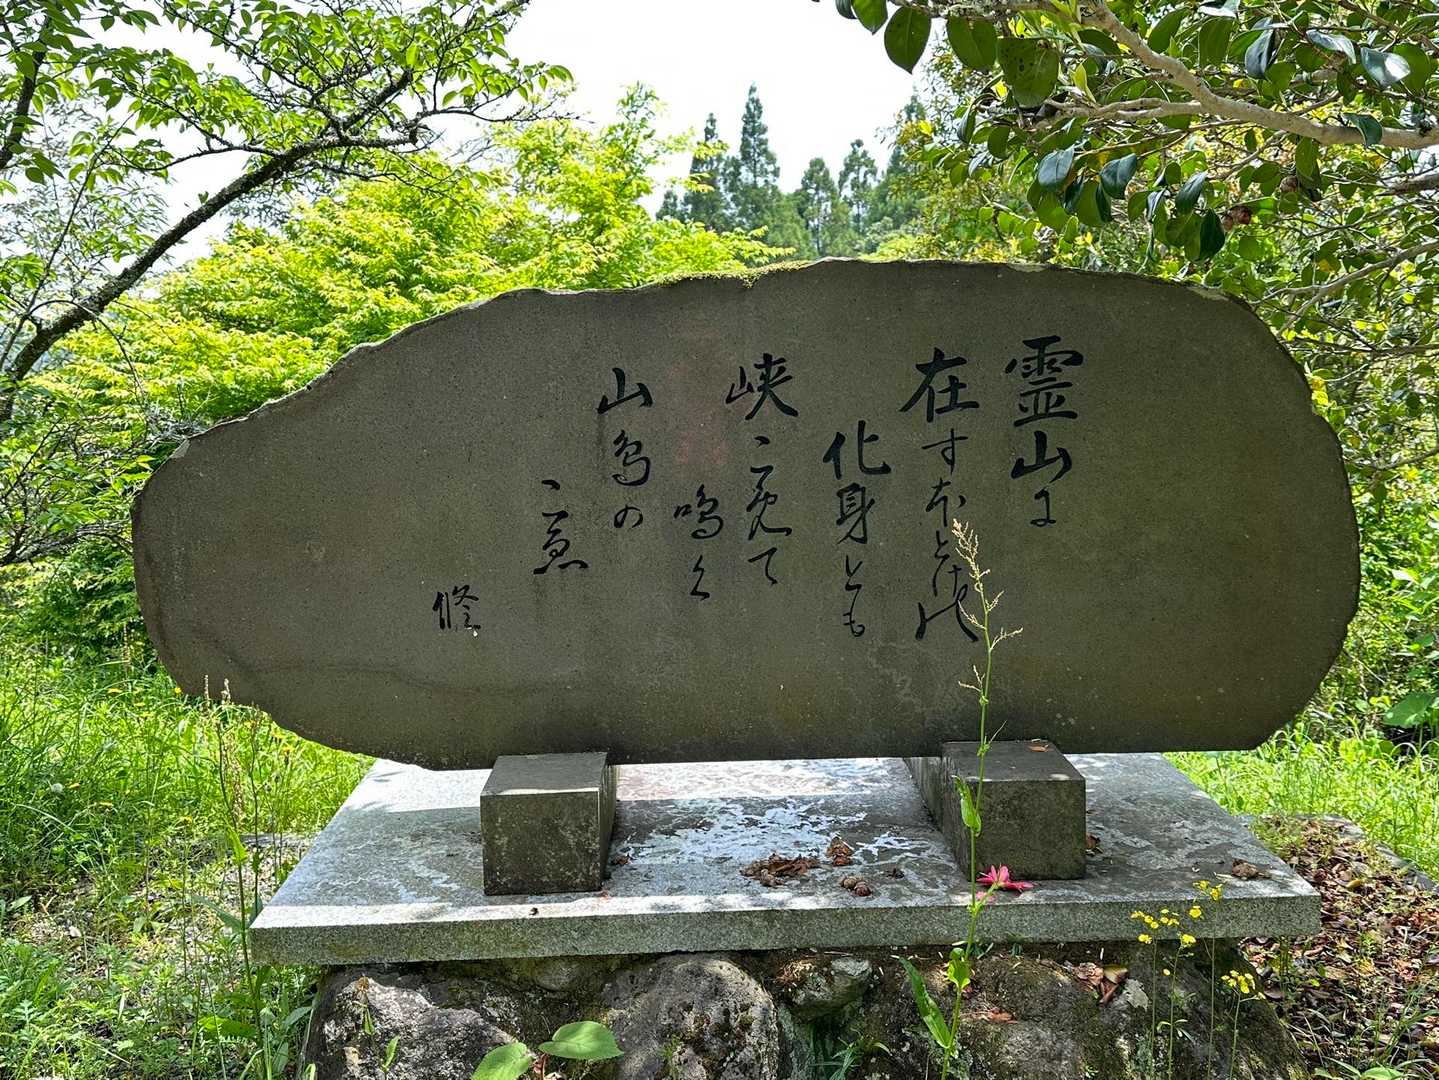 霊山に
在すほとけの
化身とも
峡こえて
鳴く
山鳥の
こゑ
修